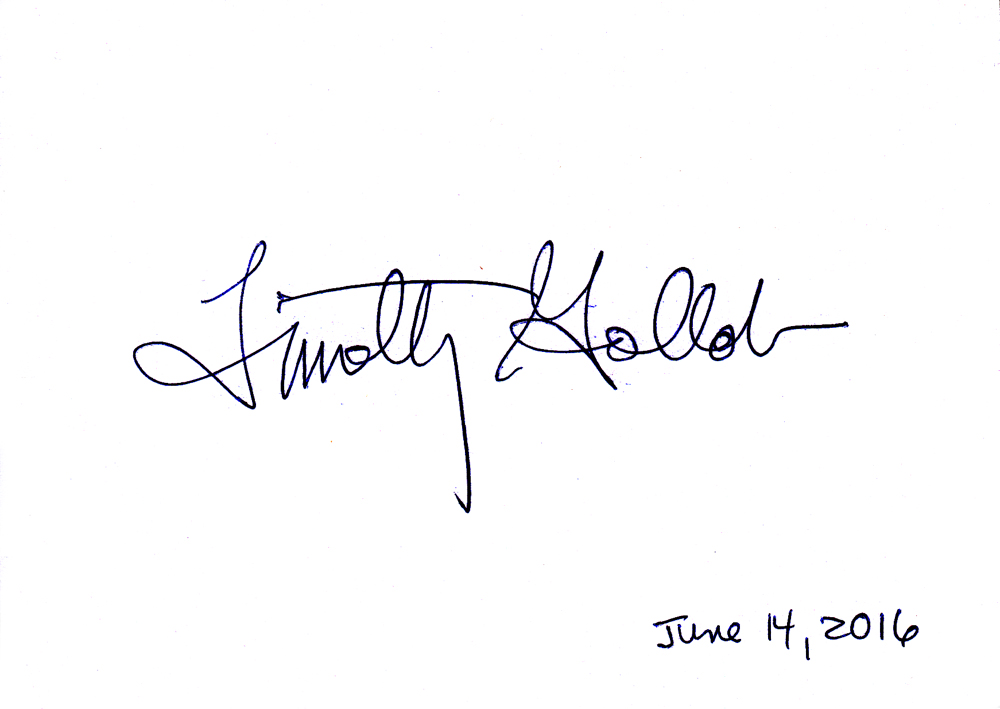 Timothy Gollob
June 14, 2016